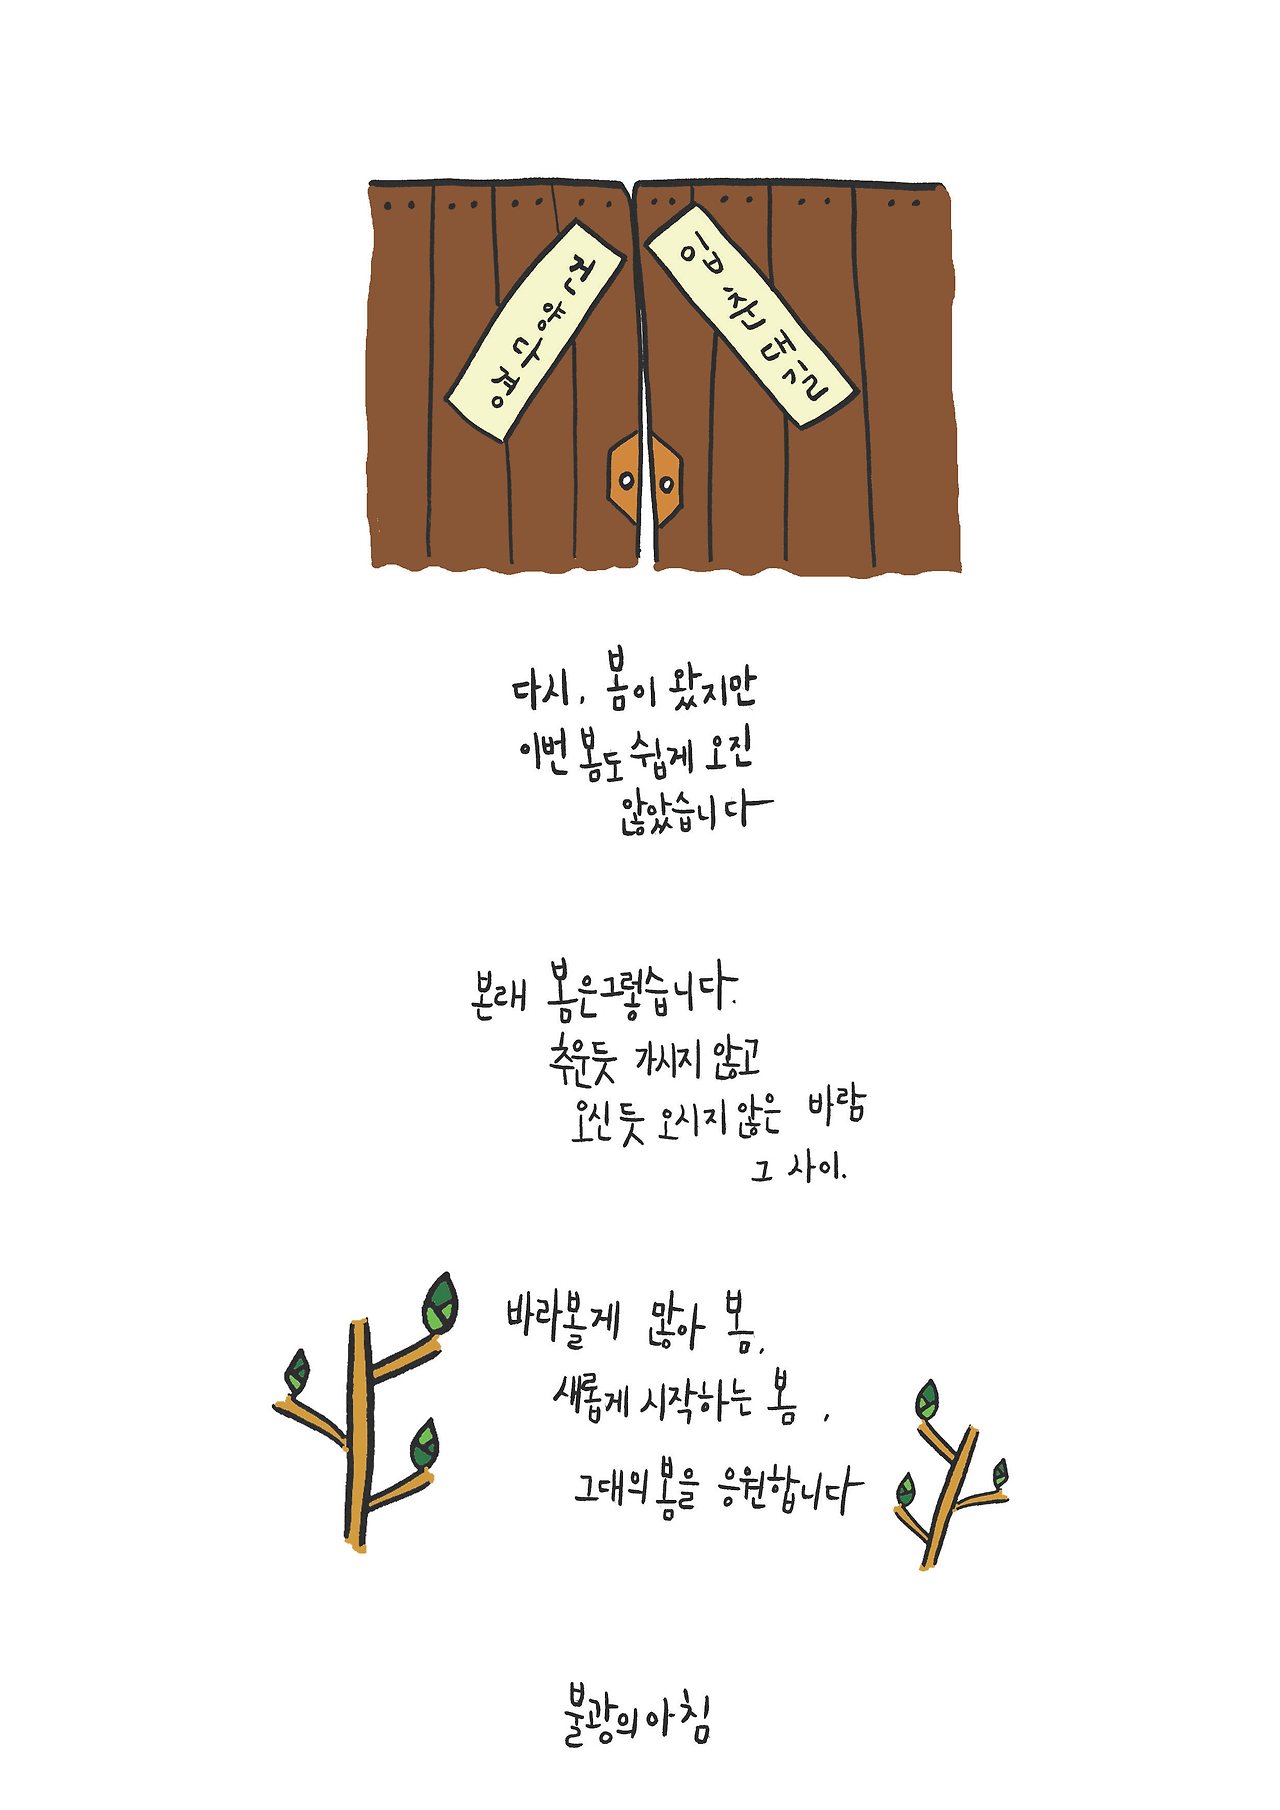 건양다경
입춘대길
다시, 봄이 왔지만
이번 봄도 쉽게 오진
않았습니다
본래 봄은그렇습니다.
추운듯 가시지 않고
오신듯 오시지 않은 바람
그 사이.
바라볼게 많아 봄,
새롭게 시작하는 봄,
그대의 봄을 응원합니다
불광의 아침